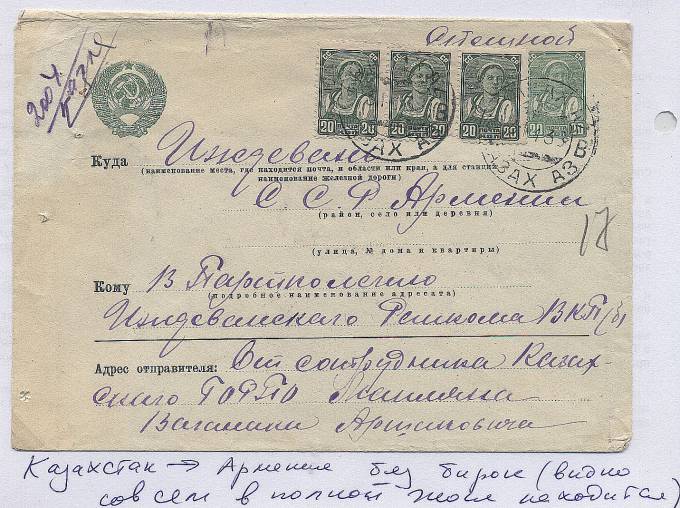 Спешной
2004
20 20
20 20
20 20
20
ЗАХ АЗ.
ЗАХ АЗ.
Куда Иждевань
(наименование места, где находится почта, и области или края, а для станций
наименование железной дороги)
С. С. Р Армении
(район, село или деревня)
17
(улица, № дома и квартиры)
Кому В Партколлегию
(подробное наименование адресата)
Иждеванского Райкома ВКП(б)
Адрес отправителя: От сотрудника Казах-
ского ГОРПО
Арташовича
Казахстан → Армения без бирок (видно
совсем в полной находится)